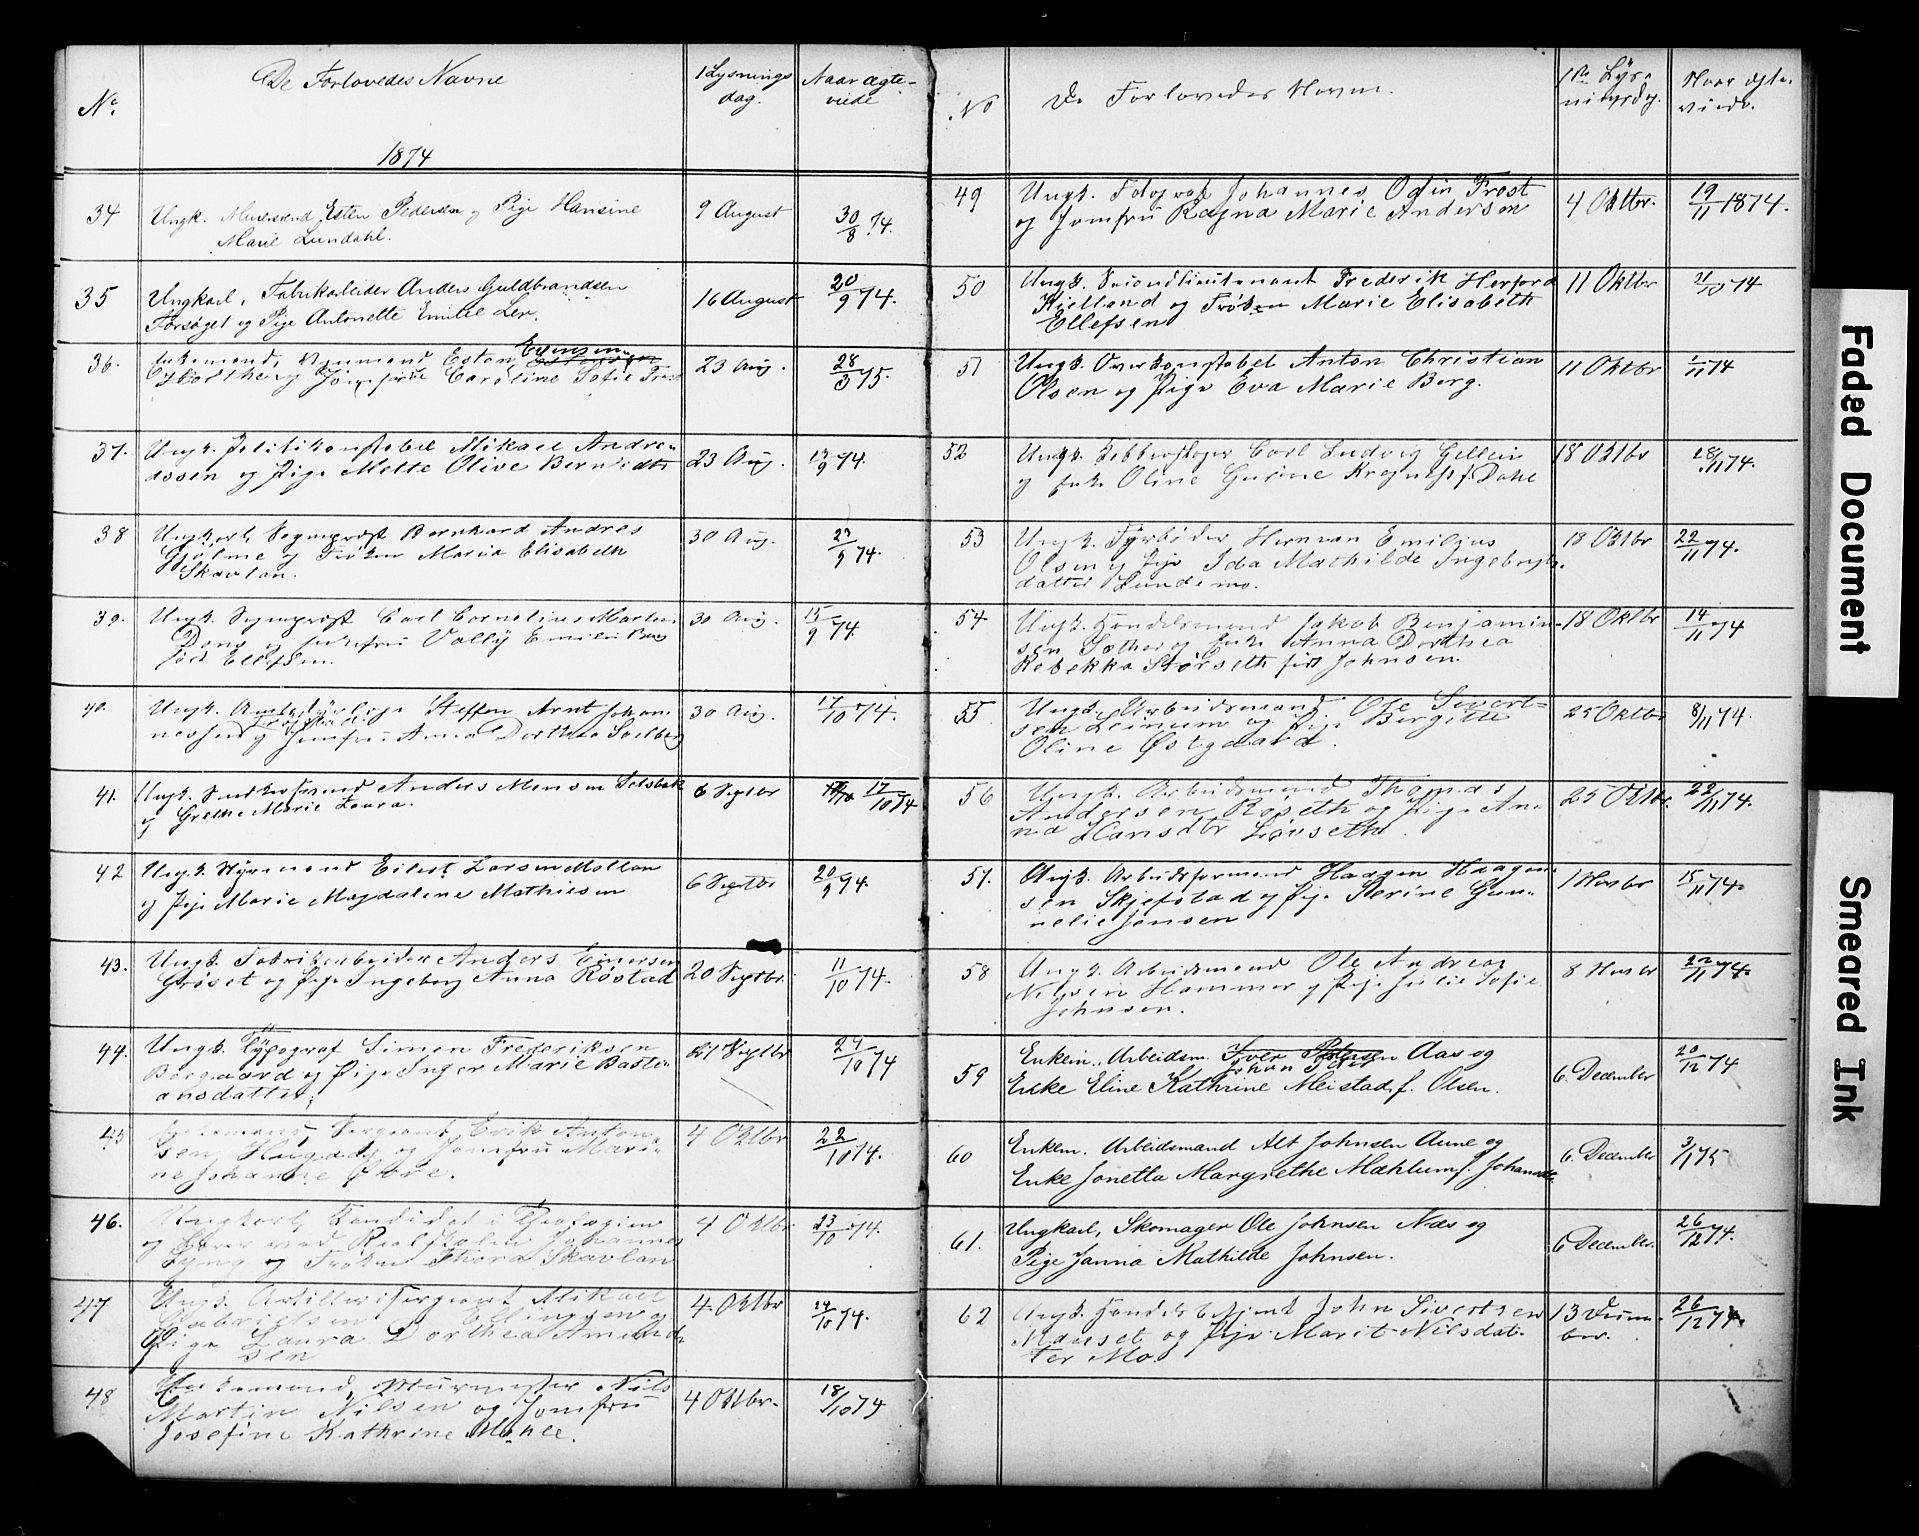 No
De Forlovedes Navne
1874
1 Lysnings
dag.
Naar ægte-
viede
34
Ungk. Esten Pedersen og Pige Hansine
Marie Lundahl.
9 August
30/8 74.
35
Ungkarl, Fabrikarbeider Anders Guldbrandsen
Forsøget og Pige Antonette Emilie Ler.
16 August
20/9 74.
36.
Enkemand, Esten Evensen
og Jomfru Caroline Sofie
23 Aug.
28/3 75.
37.
Ungk. Politikonstabel Mikael Andre-
assen og Pige Mette Olive Berntsdtr
23 Aug.
13/9 74.
38
Ungkarl, Sogneprest Bernhard Andres
Gjølme og Frøken Maria Elisabeth
Skavlan.
30 Aug.
23/9 74.
39.
Ungk. Sogneprest Carl Cornelius Marten
og Vally Emilie
född Ellefsen.
30 Aug.
15/9 74.
40.
Ungk. Steffen Arnt Johan-
nessen og Jomfru Anna Dorthea Solberg
30 Aug.
17/10 74.
41.
Ungk. Anders Monsen Selsbak
og Grethe Marie Laura.
6 Septbr
17/10 74
42
Ungk. Styrmand Eilert Larsen Mollan
og Pige Marie Magdalene Mathiesen
6 Septbr
20/9 74.
43.
Ungk. Fabrikarbeider Anders Einersen
Grøset og Pige Ingeborg Anna Røstad
20 Septbr.
11/10 74.
44.
Ungk. Typograf Simen Frederiksen
Borgaard og Pige Inger Marie Basti-
ansdatter.
27 Septbr
24/10 74
45
Enkemand, Sergeant Erik Anton-
sen og Jomfru Mari-
ne Johanne
4 Oktbr
22/10 74.
46.
Ungkarl, Kandidat i Theologien
og Lærer ved Realskolen Johannes
Lyng og Frøken Thora Skavlan
4 Oktbr
23/10 74.
47
Ungk. Artillerisergeant Mikael
Gabrielsen Ellingsen og
Pige Laura Dorthea Amund-
sen
4 Oktbr
24/10 74.
48
Enkemand, Murmester Nils
Martin Nilsen og Jomfru
Josefine Kathrine Møhle.
4 Oktbr.
18/10 74
No
De Forlovedes Navne.
1ste Lys-
ningsdg.
Naar ægte-
viede.
49
Ungk. Fotograf Johannes Odin Frost
og Jomfru Ragna Marie Andersen
4 Oktbr.
19/11 1874.
50
Ungk. Secondlieutenant Frederik Herford
Kielland og Frøken Marie Elisabeth
Ellefsen
11 Oktbr
74
51
Ungk. Overkonstabel Anton Christian
Olsen og Pige Eva Marie Berg.
11 Oktbr
1/11 74
52
Ungk. Kobberslager Carl Ludvig Gellein
og Enke Oline Gurine f. Dahl
18 Oktbr
28/11 74.
53
Ungk. Fyrbøder Herman Emilius
Olsen og Pige Ida Mathilde Ingebrigts-
datter Lundemo.
18 Oktbr
22/11 74.
54
Ungk. Handelsmand Jakob Benjamin-
sen Sæther og Enke Anna Dorthea
Rebekka Størseth född Johnsen.
18 Oktbr
14/11 74
55
Ungk. Arbeidsmand Ole Sivert-
sen Leinum og Pige Bergitte
Oline Østgaard.
25 Oktbr
8/11 74.
56
Ungk. Arbeidsmand Thomas
Andersen Røseth og Pige An-
na Hansdtr Løvseth.
25 Oktbr.
22/11 74.
57.
Ungk. Arbeidsformand Haagen Haagen-
sen Skjefstad og Pige Perine Gun-
nelie Jensen
1 Novbr
15/11 74.
58
Ungk. Arbeidsmand Ole Andreas
Nilsen Hammer og Pige Julie Sofie
Johnsen.
8 Novbr
22/11 74.
59
Enkem. Arbeidsm. Iver Petersen Aas og
Johan Peter
Enke Eline Kathrine Meistad f. Olsen.
6. December
20/12 74
60
Enkem. Arbeidsmand Alt Johnsen Aune og
Enke Jonetta Margrethe Mæhlum f. Johansdr
6. December
3/1 75
61.
Ungkarl, Skomager Ole Johnsen Næs og
Pige Janna Mathilde Johnsen.
6 December.
26/12 74.
62
Ungk. Handelsbetjent John Sivertsen
Mauset og Pige Marit Nilsdat-
ter Mo.
13 Decem-
ber.
26/12 74.
Faded Document
Smeared Ink